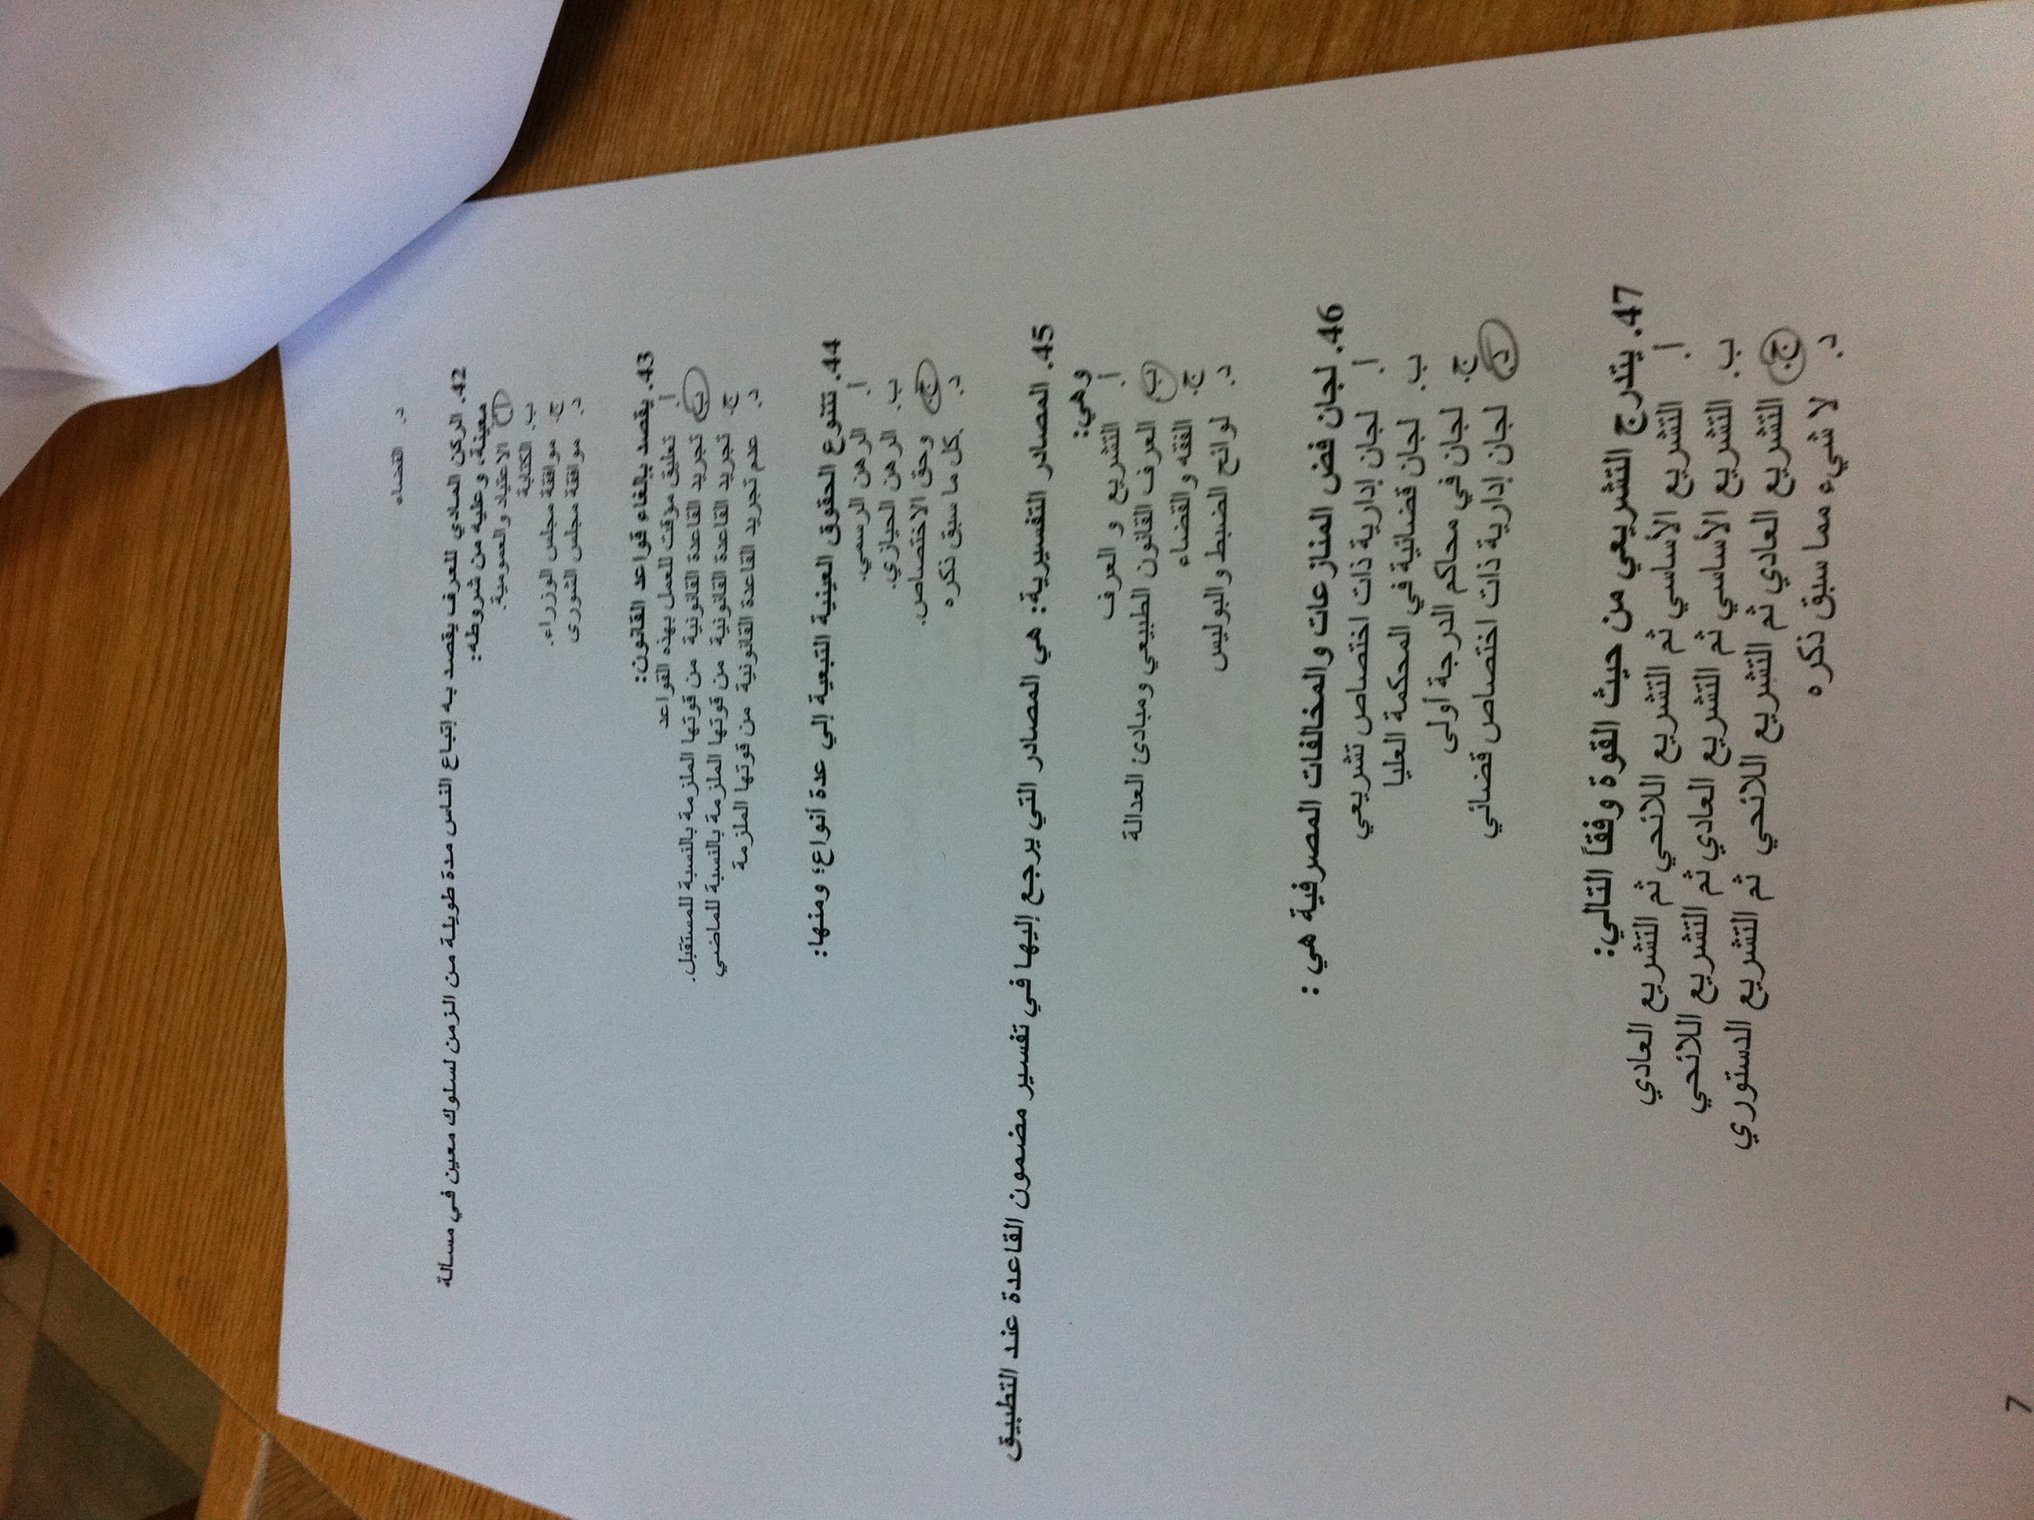 د. القضاء
42. الركن المادي للعرف يقصد به إتباع الناس مدة طويلة من الزمن لسلوك معين في مسألة
معينة، وعليه من شروطه:
أ. الاعتياد والعمومية.
ب. الكتابة
ج. موافقة مجلس الوزراء.
د. موافقة مجلس الشورى
43. يقصد بإلغاء قواعد القانون:
أ. تعليق مؤقت للعمل بهذه القواعد
ب. تجريد القاعدة القانونية من قوتها الملزمة بالنسبة للمستقبل.
ج. تجريد القاعدة القانونية من قوتها الملزمة بالنسبة للماضي
د. عدم تجريد القاعدة القانونية من قوتها الملزمة
44. تتنوع الحقوق العينية التبعية إلي عدة أنواع؛ ومنها:
أ. الرهن الرسمي.
ب. الرهن الحيازي.
ج. وحق الاختصاص.
د. كل ما سبق ذكره
45. المصادر التفسيرية: هي المصادر التي يرجع إليها في تفسير مضمون القاعدة عند التطبيق
وهي:
أ. التشريع و العرف
ب. العرف القانون الطبيعي ومبادئ العدالة
ج. الفقه والقضاء
د. لوائح الضبط والبوليس
46. لجان فض المنازعات والمخالفات المصرفية هي :
أ. لجان إدارية ذات اختصاص تشريعي
ب. لجان قضائية في المحكمة العليا
ج. لجان في محاكم الدرجة أولى
د. لجان إدارية ذات اختصاص قضائي
47. يتدرج التشريعي من حيث القوة وفقاً التالي:
أ. التشريع الأساسي ثم التشريع اللائحي ثم التشريع العادي
ب. التشريع الأساسي ثم التشريع العادي ثم التشريع اللائحي
ج. التشريع العادي ثم التشريع اللائحي ثم التشريع الدستوري
د. لا شيء مما سبق ذكره
7